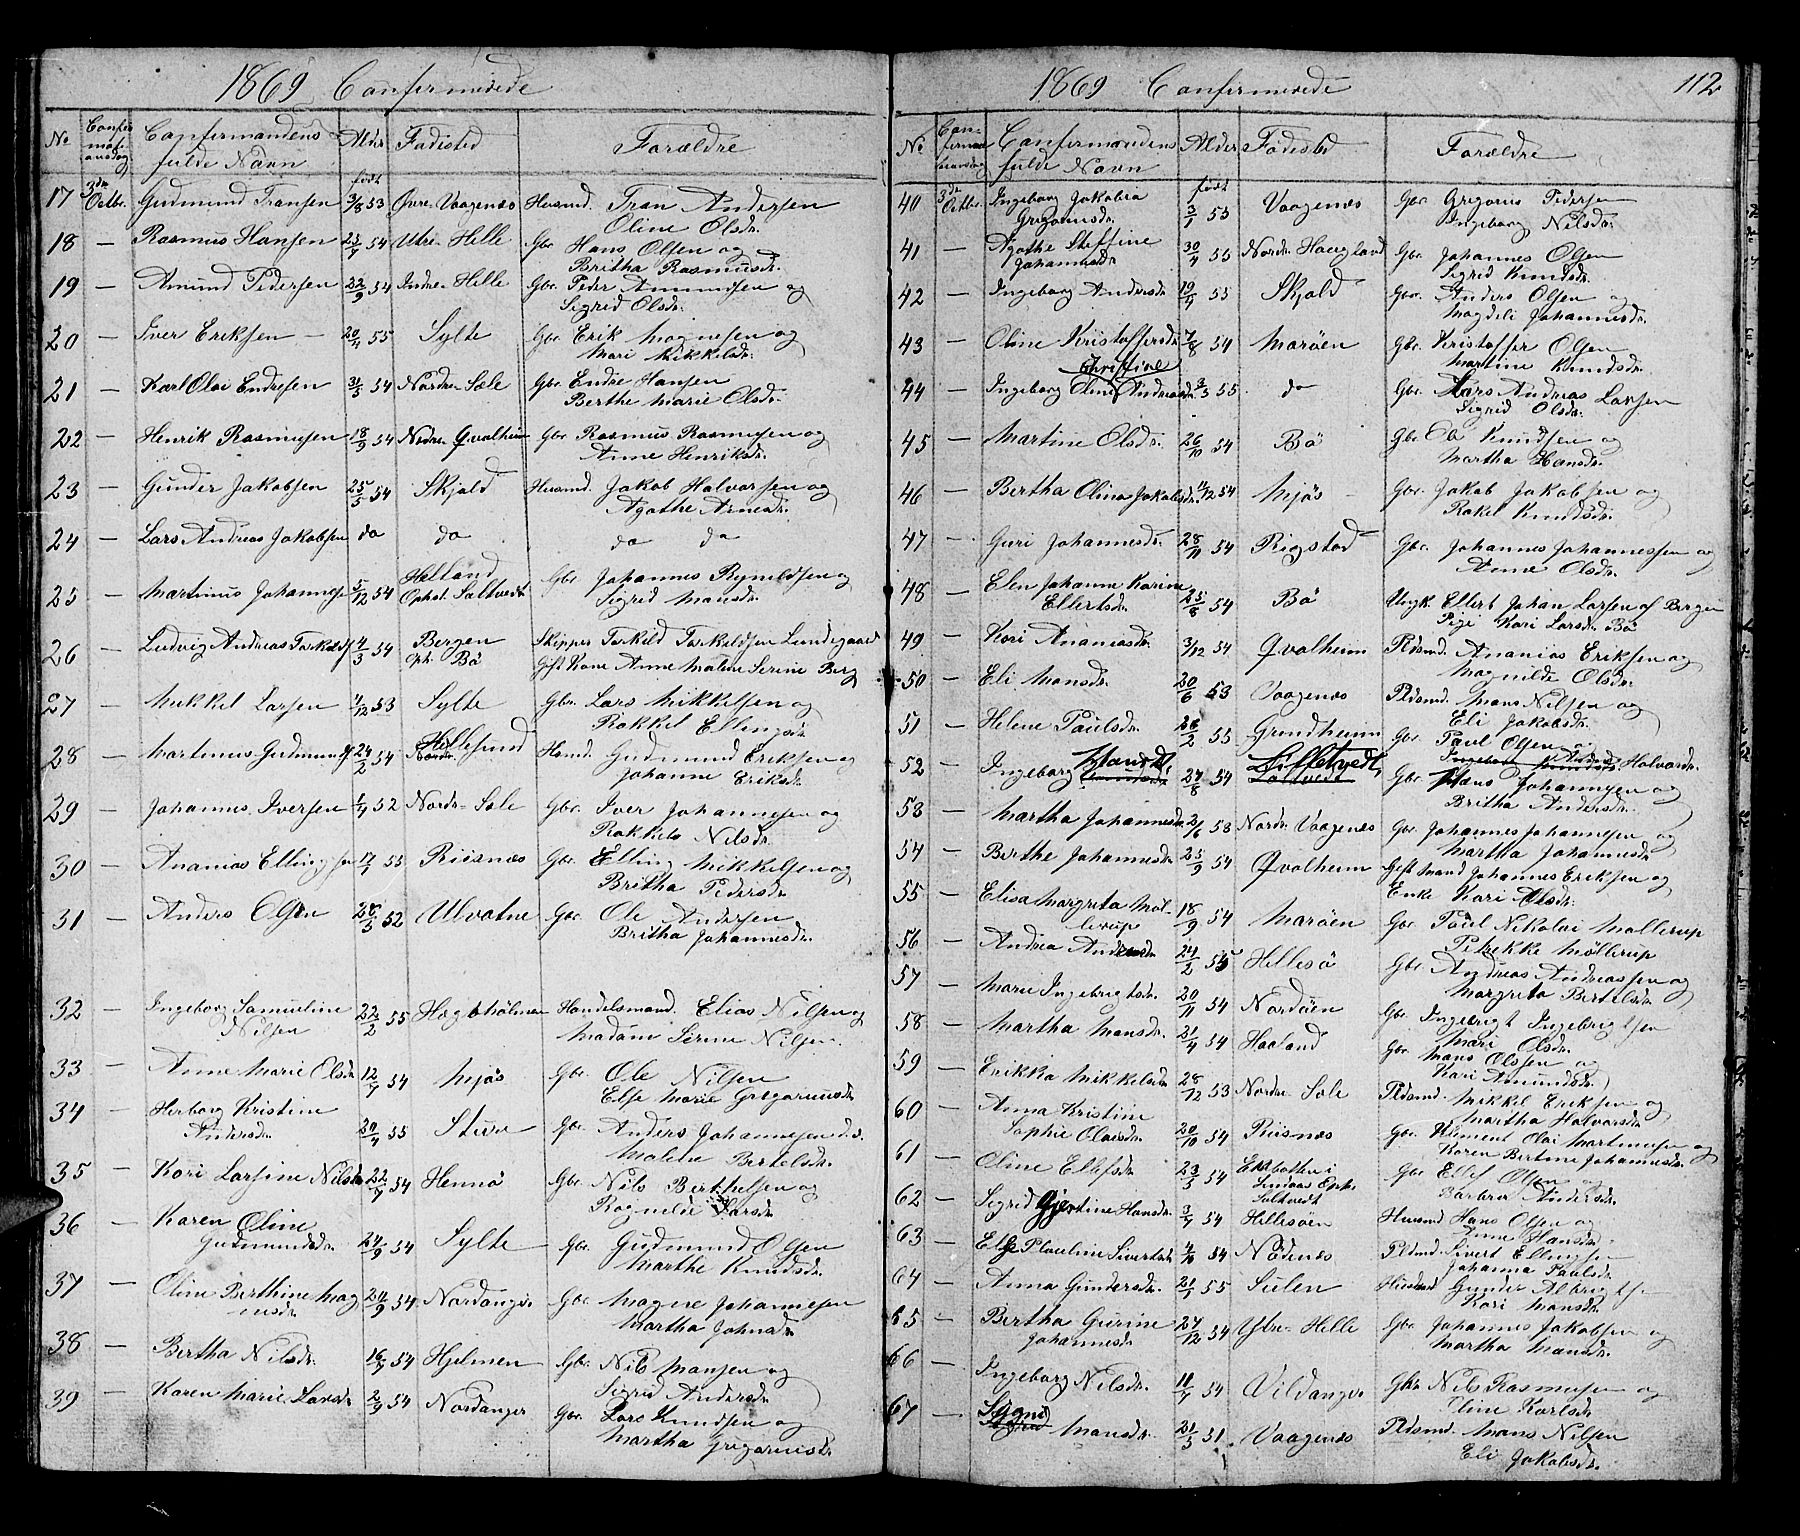 1869 Confirmerede
No Confirmationsdag Confirmandens fulde Navn Alder Födested Forældre
født
17 3die Octbr. Gudmund Fransen 3/8 53 Øvre-Vaagenæs Husmd. Fran Andersen
Oline Olsdr.
18 — Rasmus Hansen 54 Ytre-Helle Gbr. Hans Olsen og
Britha Rasmusdr.
19 — Amund Pedersen 22/9 54 Indre-Helle Gbr. Peder Amundsen og
Sigrid Olsdr.
20 — Iver Eriksen — 20/4 55 Sylte Gbr. Erik Magnesen og
Mari Mikkelsdr.
21 — Karl Olai Endresen 31/5 54 Nordre-Sæle Gbr. Endre Hansen
Berthe Marie Olsdr.
22 — Henrik Rasmusen 18/9 54 Nedre-Qvalheim Gbr. Rasmus Rasmusen og
Anne Henriksdr.
23 — Gunder Jakobsen 25/5 54 Skjold Husmd. Jakob Halvorsen og
Agathe Arnesdr.
24 — Lars Andreas Jakobsen do do do do
25 — Martinus Johannesen 5/12 54 Helland
Ophol. Saltvedt Gbr. Johannes Rynildsen og
Sigrid Monsdr.
26 — Ludvig Andreas Torkelds. 4/3 54 Bergen
Oph. Bö Skipper Torkild Torkildsen Lundegaard
Gift Kone Anne Malene Serine Berg
27 — Mikkel Larsen 4/12 53 Sylte Gbr. Lars Mikkelsen og
Rakkel Ellingsdr.
28 — Martinus Gudmunds. 24/2 54 Hellesund Husmd. Gudmund Eriksen og
Johanne Eriksdr.
29 — Johannes Iversen 52 Nordr-Sæle Gbr. Iver Johannesen og
Rakkela Nilsdr.
30 — Ananias Ellingsen 17/1 55 Riisnæs Gbr. Elling Mikkelsen og
Britha Pedersdr.
31 — Anders Olsen 28/5 52 Ulvatne Gbr. Ole Andersen
Britha Johannesdr.
32 — Ingeborg Samueline
Nilsen 22/2 55 Hægholmen Handelsmand. Elias Nilsen og
Madam Serine Nilsen.
33 — Anne Marie Olsdr. 12/7 54 Mjös Gbr. Ole Nilsen
Else Marie Gregoriusdr.
34 — Herborg Kristine
Andersdr. 20/4 55 Sture Gbr. Anders Johannesen
Malene Bertelsdr.
35 — Kari Larsine Nilsdr. 22/7 54 Hennö Gbr. Nils Berthelsen og
Ragnilde Larsdr.
36 — Karen Oline
Gudmundsdr. 24/9 54 Sylte Gbr. Gudmund Olsen
Marthe Knudsdr.
37 — Oline Berthine Mag
nusdr. 54 Nordanger Gbr. Magne Johannesen
Martha Johnsdr.
38 — Bertha Nilsdr. 16/7 54 Hjelmen Gbr. Nils Monsen og
Sigrid Andersdr.
39 — Karen Marie Larsdr. 2/9 54 Nordanger Gbr. Lars Knudsen og
Martha Gregoriusdr.
1869 Confirmerede 112
No Confirmationsdag Confirmandens fulde Navn Alder Födested Forældre
født
40 3die Octbr. Ingeborg Jakobia
Gregoriusdr. 3/1 55 Vaagenæs Gbr. Gregorius Pedersen
Ingeborg Nilsdr.
41 — Agathe Steffine
Johannesdr. 30/4 55 Nordr-Haugland Gbr. Johannes Olsen
Sigrid Knudsdr.
42 — Ingeborg Andersdr. 55 Skjold Gbr. Anders Olsen og
Magdeli Johannesdr.
43 — Oline Kristoffersdr. 7/8 54 Maröen Gbr. Kristoffer Olsen
Martine Knudsdr.
44 — Ingeborg Oline Christine Andreasdr. 3/3 55 do Gbr. Lars Andreas Larsen
Sigrid Olsdr.
45 — Martine Olsdr. 26/10 54 Bö Gbr. Ole Knudsen og
Martha Hansdr.
46 — Bertha Olina Jakobsdr. 11/12 54 Mjös Gbr. Jakob Jakobsen og
Rakel Knudsdr.
47 — Guri Johannesdr. 28/11 54 Rigstad Gbr. Johannes Johannessen og
Anne Olsdr.
48 — Elen Johanne Karine
Ellertsdr. 25/8 54 Bö Ungk. Ellert Johan Larsen af Bergen
Pige Kari Larsdr. Bö
49 — Kari Ananiasdr. 3/12 54 Qvalheim Pldsmd. Ananias Eriksen og
Magnilde Olsdr.
50 — Eli Monsdr. 20/6 53 Vaagenæs Pldsmd. Mons Nilsen og
Eli Jakobsdr.
51 — Helene Paulsdr. 26/2 55 Grondheim Gbr. Paul Olsen og
Halvorsdr.
52 — Ingeborg Hansdr. 27/8 54 Lilletvedt, Saltvedt Gbr. Hans Johannesen og
Britha Andersdr.
53 — Martha Johannesdr. 2/6 53 Nordr. Vaagenæs Gbr. Johannes Johannesen og
Martha Johannesdr.
54 — Berthe Johannesdr. 25/9 54 Qvalheim Gift Mand Johannes Eriksen og
Enke Kari Olsdr.
55 — Elisa Margreta Mol-
lerup 18/9 54 Maröen Gbr. Paul Nikolai Mollerup
Petrikke Mollerup
56 — Andrea Andreasdr. 24/2 54 Hellesö Gbr. Andreas Andreassen og
Margreta Bertelsdr.
57 — Marie Ingebrigtsdr. 20/11 54 Nordöen Gbr. Ingebrigt Ingebrigtsen
Mari Olsdr.
58 — Martha Monsdr. 21/4 54 Haaland Gbr. Mons Olsen og
Kari Amundsdr.
59 — Erikka Mikkelsdr. 28/12 53 Nordr-Sæle Pldsmd. Mikkel Eriksen og
Martha Halvorsdr.
60 — Anna Kristine
Sophie Olaisdr. 20/10 54 Riisnæs Gbr. Klement Olai Martinusen og
Karen Bertine Johannesdr.
61 — Oline Ellefsdr. 23/5 54 Eikbotten i
Lindaas
Saltvedt Gbr. Ellef Olsen og
Barbro Andersdr.
62 — Sigrid Gjertine Hansdr. 3/7 54 Hellesöen Husmd Hans Olsen og
Anne Hansdr.
63 — Else Pauline Sivertsdr. 4/10 54 Nödenæs Pldsmd. Sivert Ellingsen
Johanna Paulsdr.
64 — Anna Gundersdr. 21/1 55 Sulen Husmd Gunder Albrigtsen
Kari Monsdr.
65 — Bertha Gurine
Johannesdr. 27/12 54 Ytre-Helle Gbr. Johannes Jakobsen og
Martha Monsdr.
66 — Ingeborg Nilsdr. 11/7 54 Vildanger Gbr. Nils Rasmusen og
Eline Karlsdr.
67 — Signe Monsdr. 21/5 51 Vaagenæs Pldsmd. Mons Nilsen
Eli Jakobsdr.